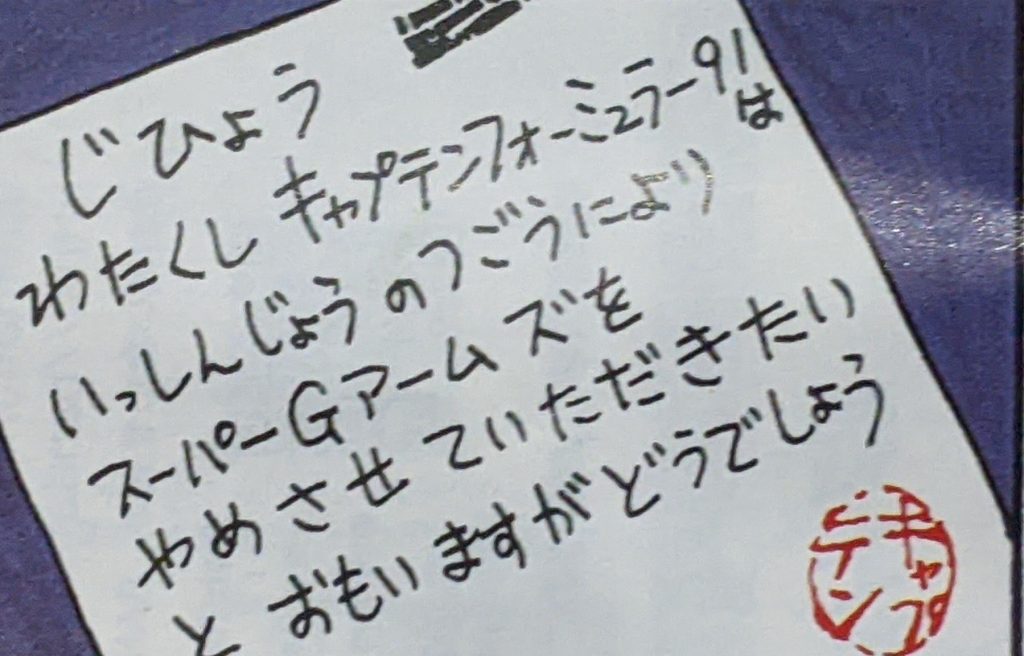 じひょう
わたくし キャプテンフォーミュラー91は
いっしんじょうのつごうにより
スーパーGアームズを
やめさせていただきたい
と おもいますがどうでしょう
キャプ
テン